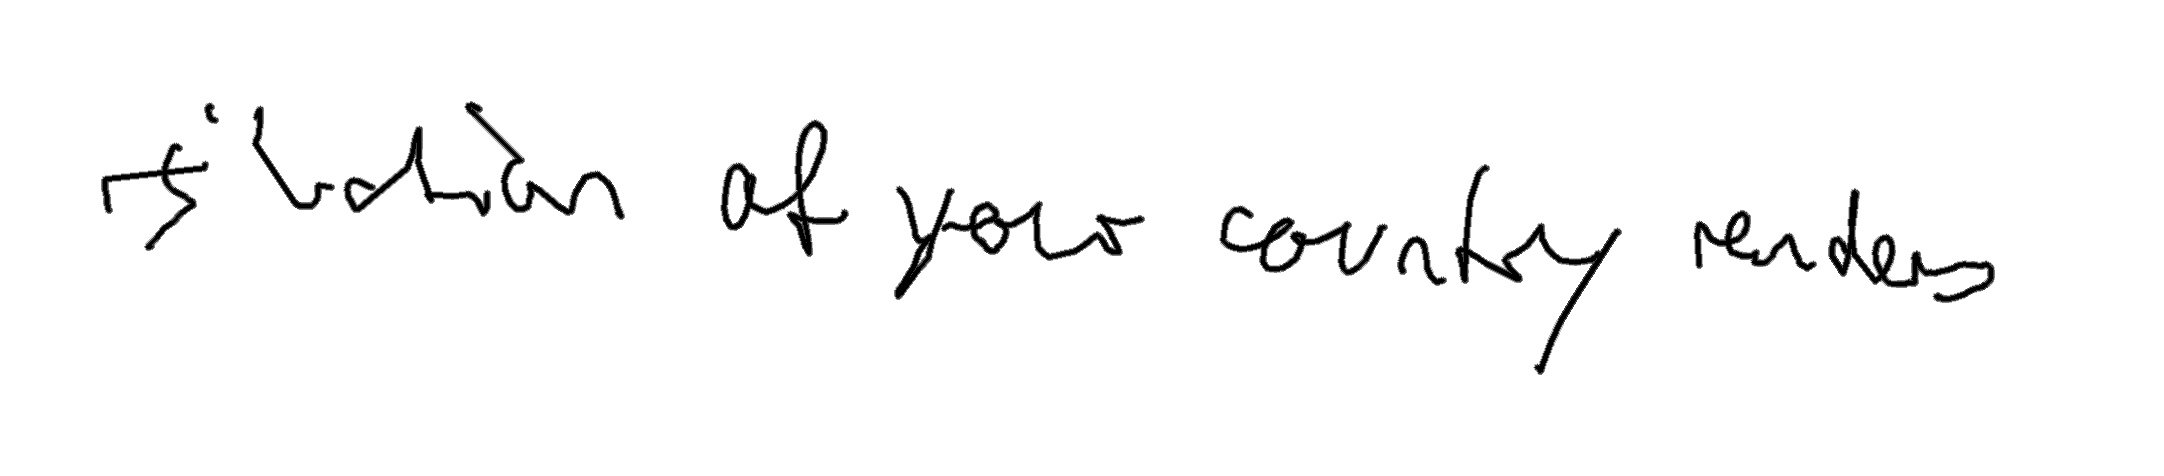 situation of your country renders